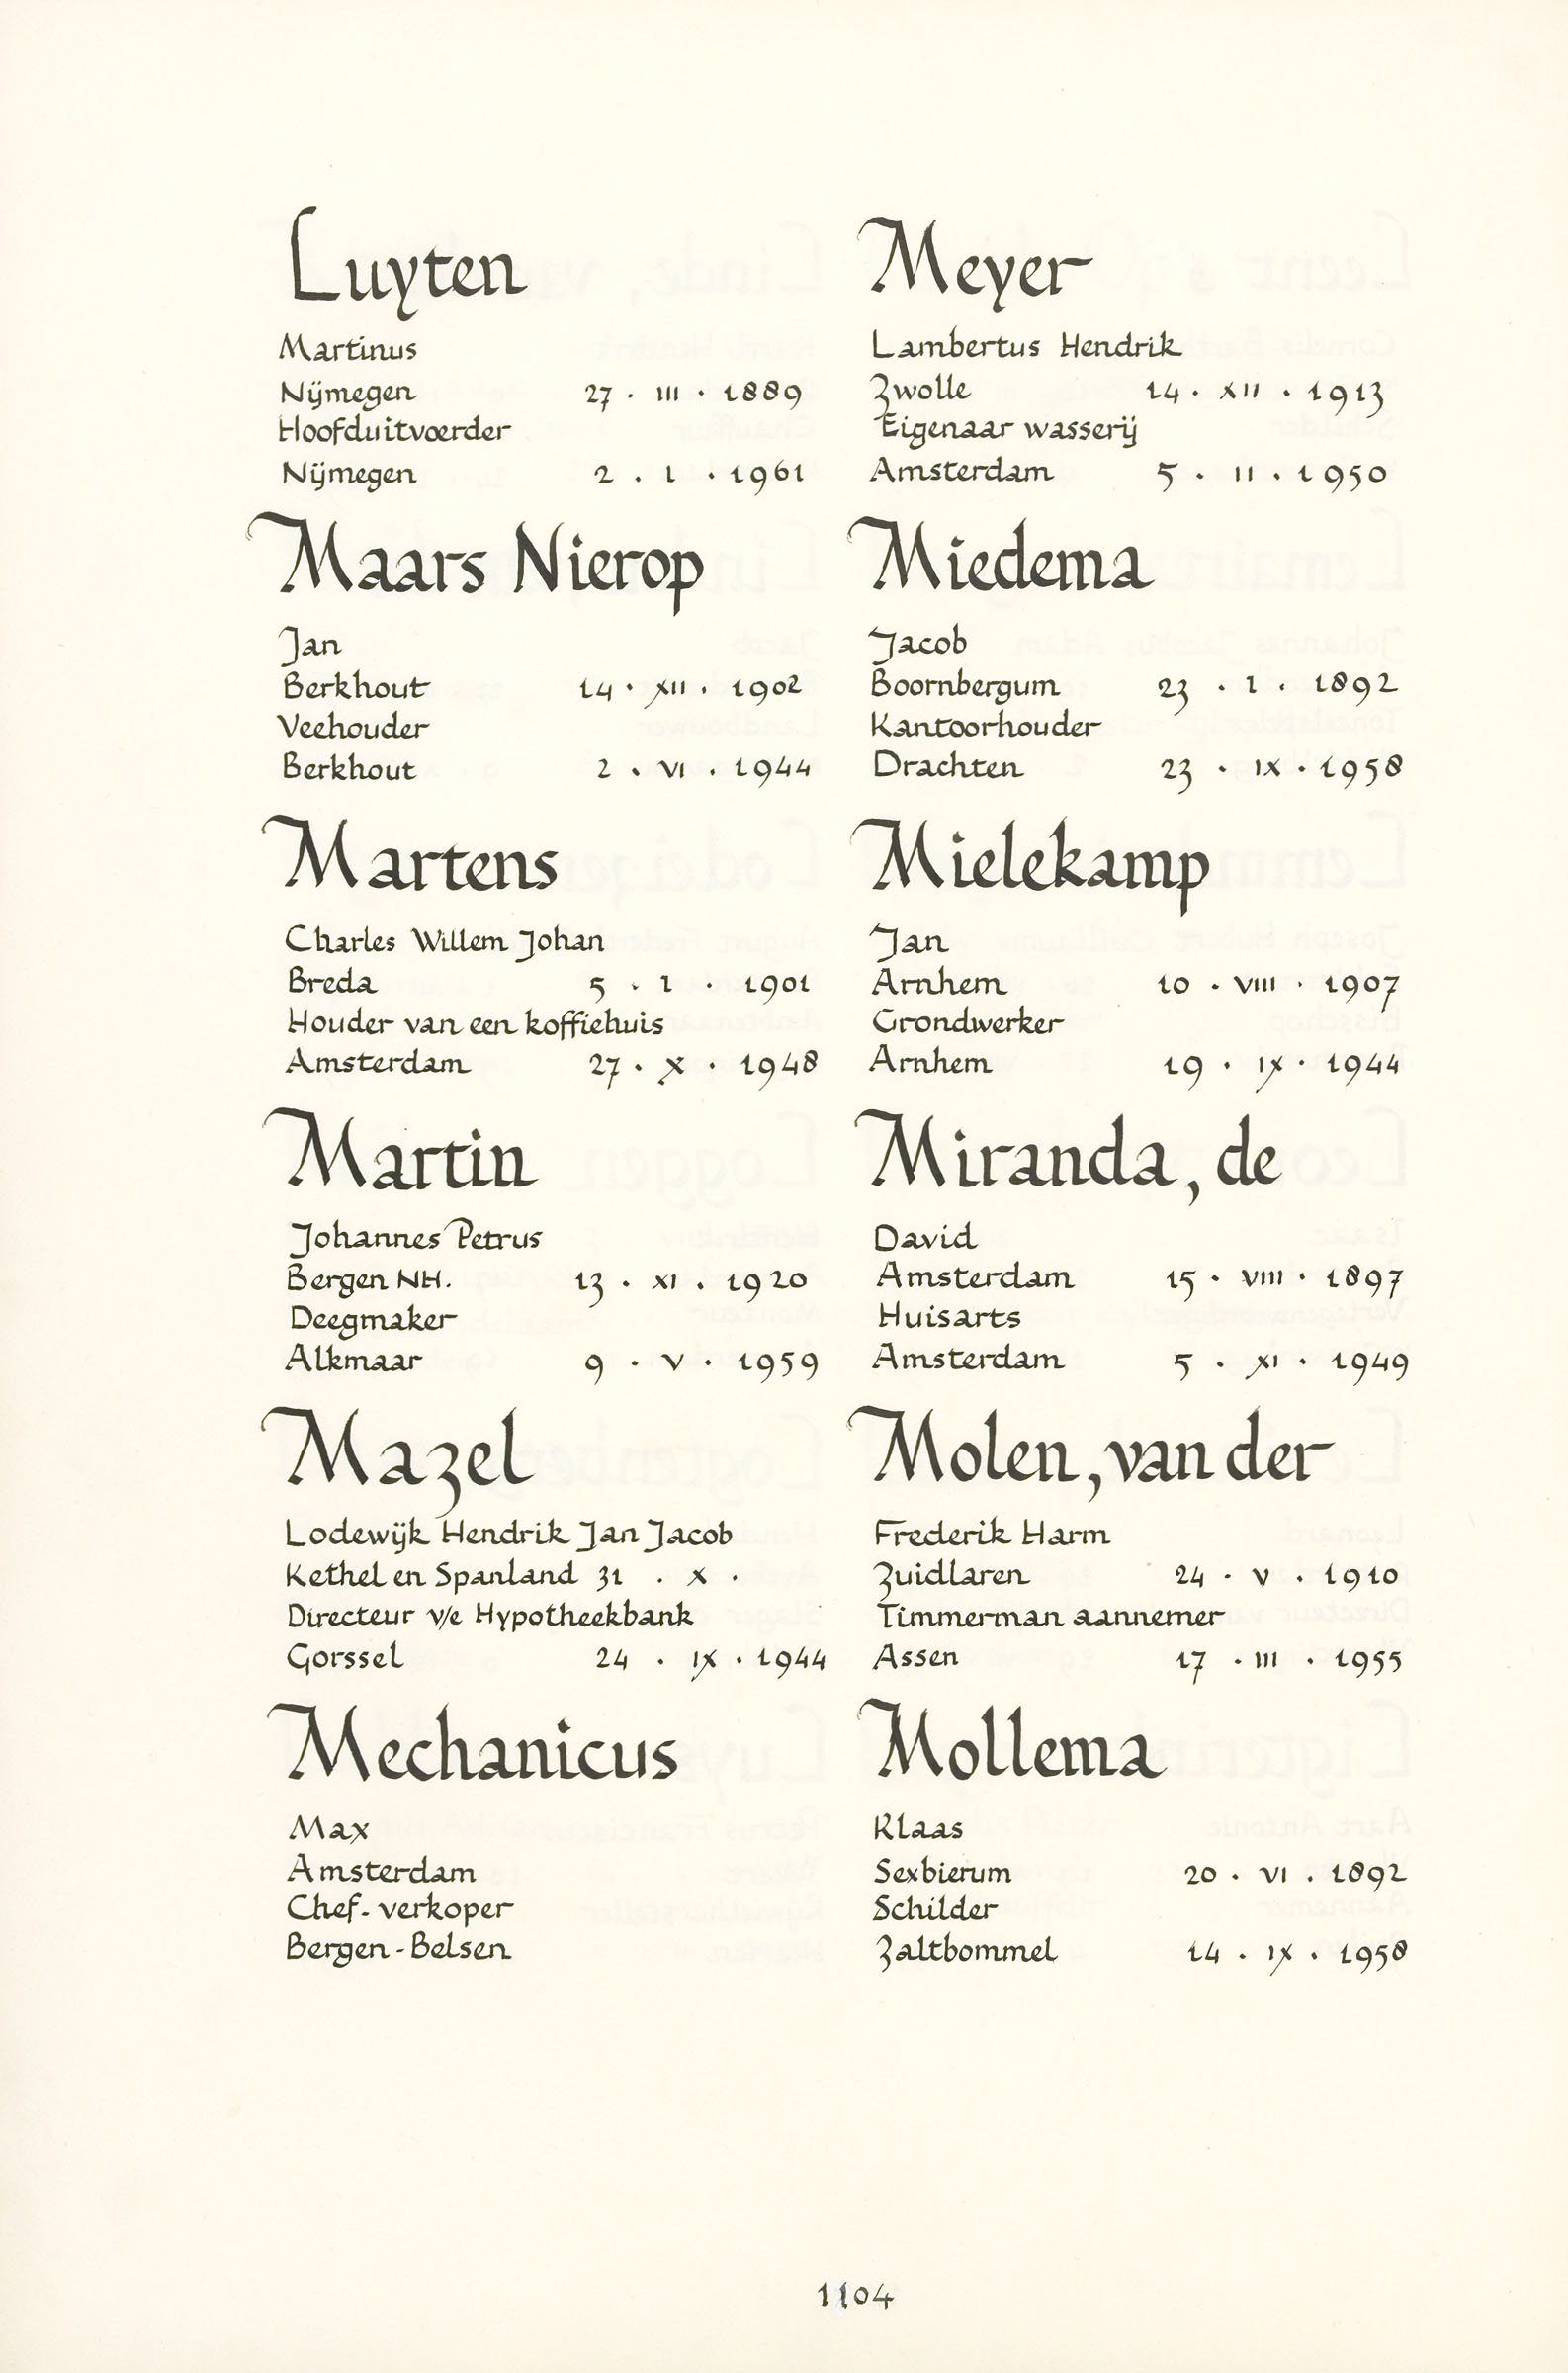 Luyten
Martinus
Nijmegen 27 · III · 1889
Hoofduitvoerder
Nijmegen 2 · I · 1961
Maars Nierop
Jan
Berkhout 14 · XII · 1902
Veehouder
Berkhout 2 · VI · 1944
Martens
Charles Willem Johan
Breda 5 · I · 1901
Houder van een koffiehuis
Amsterdam 27 · X · 1948
Martin
Johannes Petrus
Bergen NH. 13 · XI · 1920
Deegmaker
Alkmaar 9 · V · 1959
Mazel
Lodewijk Hendrik Jan Jacob
Kethel en Spanland 31 · X ·
Directeur v/e Hypotheekbank
Gorssel 24 · IX · 1944
Mechanicus
Max
Amsterdam
Chef-verkoper
Bergen-Belsen
Meyer
Lambertus Hendrik
Zwolle 14 · XII · 1913
Eigenaar wasserij
Amsterdam 5 · II · 1950
Miedema
Jacob
Boornbergum 23 · I · 1892
Kantoorhouder
Drachten 23 · IX · 1958
Mielekamp
Jan
Arnhem 10 · VIII · 1907
Grondwerker
Arnhem 19 · IX · 1944
Miranda, de
David
Amsterdam 15 · VIII · 1897
Huisarts
Amsterdam 5 · XI · 1949
Molen, van der
Frederik Harm
Zuidlaren 24 · V · 1910
Timmerman aannemer
Assen 17 · III · 1955
Mollema
Klaas
Sexbierum 20 · VI · 1892
Schilder
Zaltbommel 14 · IX · 1958
1104